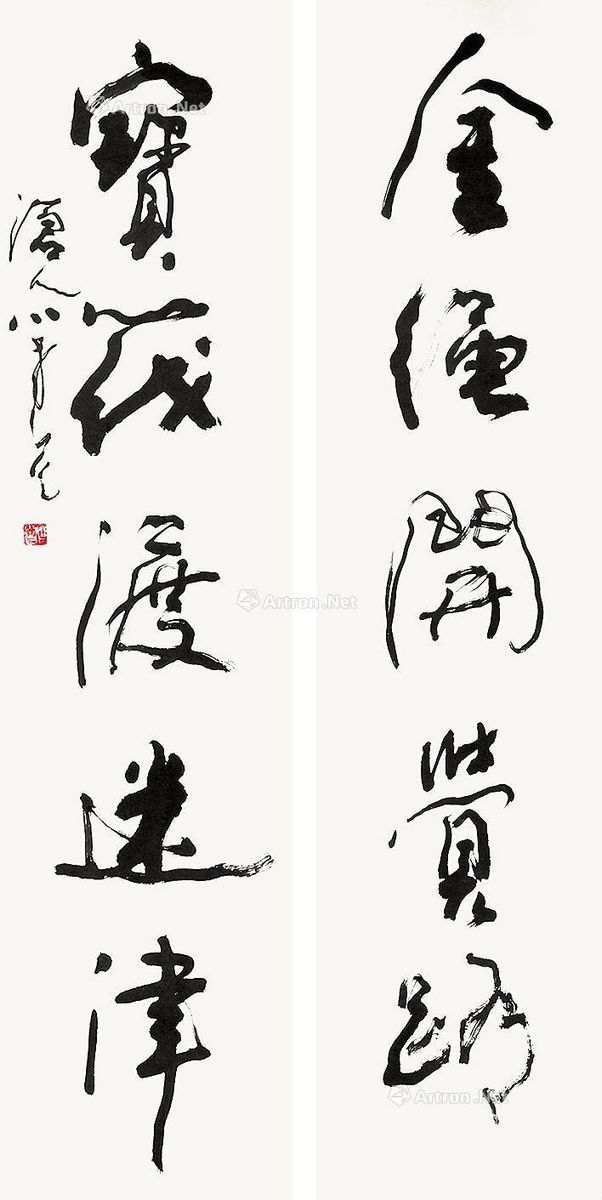 金繩開覺路
寶筏渡迷津
Artron.Net
Artron.Net
Artron.Net